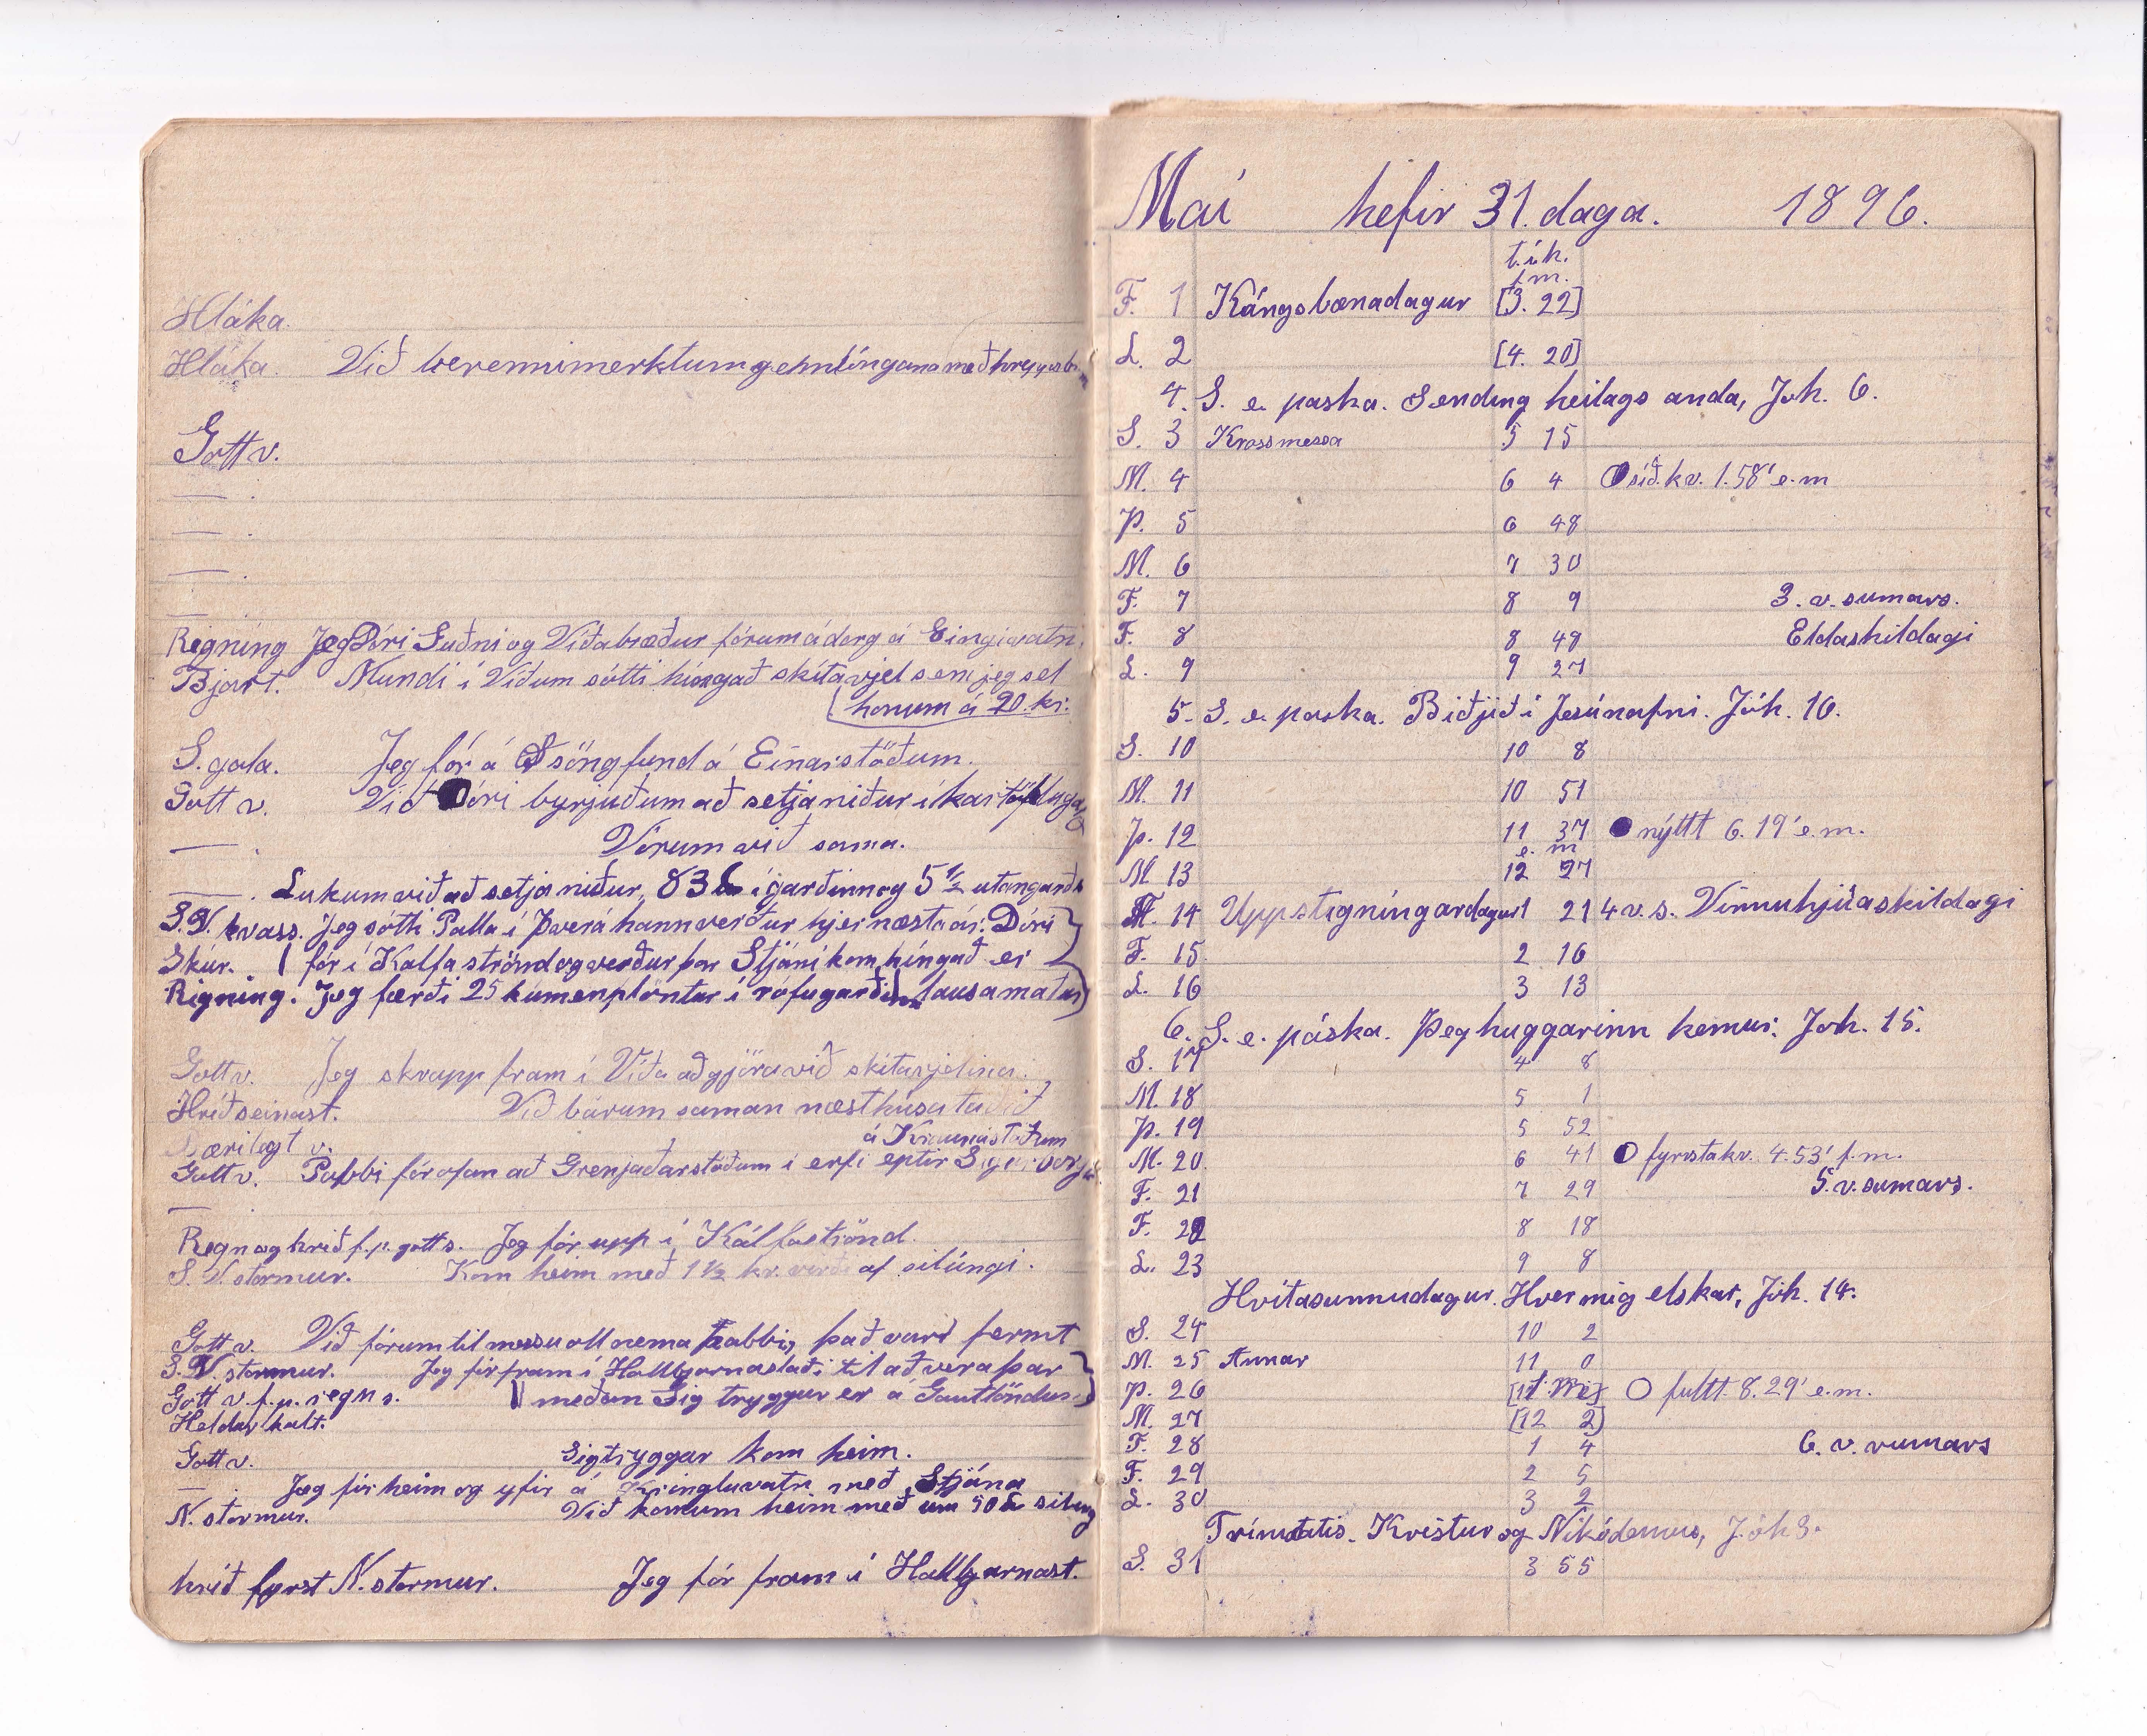 Hláka.
Hláka. Við brennimerktum gemlíngana með hreppsbr.
Gott v.
— .
— .
— .
—
Regníng Jeg Dóri Guðni og Víðabræður fórum á dorg á Eingivatni.
Bjart. Mundi í Víðum sótti híngað skítavjel sem jeg sel
honum á 20. kr.
S. gola. Jeg fór á Söngfund á Einarstöðum.
Gott v. Við Dóri byrjuðum að setja niður í kartöflug
— . Vórum við sama.
— . Lukum við að setja niður, 83 í garðinn og 5 1/2 utangarðs
S.V. hvass. Jeg sótti Palla í Þverá hann verður hjer næsta ár. Dóri
Skúr. fór í Kálfaströnd og verður þar Stjáni kom híngað er
Rigning. Jeg færði 25 kúmenplöntur í rófugarðin lausamaður
Gott v. Jeg skrapp fram í Víða að gjöra við skítavjelina.
Hríð seinast. Við bárum saman næsthúsa taðið
á Kraunastöðum
Bærilegt v.
Gott v. Pabbi fór ofan að Grenjaðarstöðum í erfi eptir Sigurborgu
—
Regn og hríð f.p. gott s. Jeg fór upp í Kálfaströnd.
S.V. stormur. Kom heim með 1 1/2 kr. virði af silúngi.
Gott v. Við fórum til messu oll nema Pabbi, það varð fermt
S.V. stormur. Jeg fór fram í Hallbjarnastaði til að vera þar
Gott v. f.p. regn s. meðan Sigtryggur er á Gautlöndum
Heldur kalt.
Gott v. Sigtryggur kom heim.
— . Jeg fór heim og yfir á Kringluvatn með Stjána
N. stormur. Við komum heim með um 50 silung
hríð fyrst N. stormur. Jeg fór fram í Hallbjarnast.
Maí hefir 31. daga. 1896.
t. í h.
f m.
F. 1 Kóngsbænadagur [3. 22]
L. 2 [4. 20]
4. S. e. paska. Sendíng heilags anda, Joh. 6.
S. 3 Krossmessa 5 15
M. 4 6 4 síð. kv. 1.58' e.m
Þ. 5 6 48
M. 6 7 30
F. 7 8 9 3. v. sumars.
F. 8 8 49 Eldaskildagi
L. 9 9 27
5. S. e. paska. Biðjið í Jesú nafni. Jóh. 16.
S. 10 10 8
M. 11 10 51
Þ. 12 11 37 nýtt 6. 19' e.m.
e. m
M. 13 12 27
F. 14 Uppstigníngardagur 1 21 4 v. s. Vinnuhjúaskildagi
F. 15 2 16
L. 16 3 13
6. S. e. páska. Þeg huggarinn kemur. Joh. 15.
S. 17 4 8
M. 18 5 1
Þ. 19 5 52
M. 20 6 41 fyrsta kv. 4.53' f.m.
F. 21 7 29 5. v. sumars.
F. 22 8 18
L. 23 9 8
Hvítasunnudagur. Hver mig elskar, Jóh. 14.
S. 24 10 2
M. 25 Annar 11 0
Þ. 26 fullt. 8.29' e.m.
M. 27 [12 2]
F. 28 1 4 6. v. sumars
F. 29 2 5
L. 30 3 2
Trínitatis. Kristur og Nikódemus, Jóh 3.
S. 31 3 55